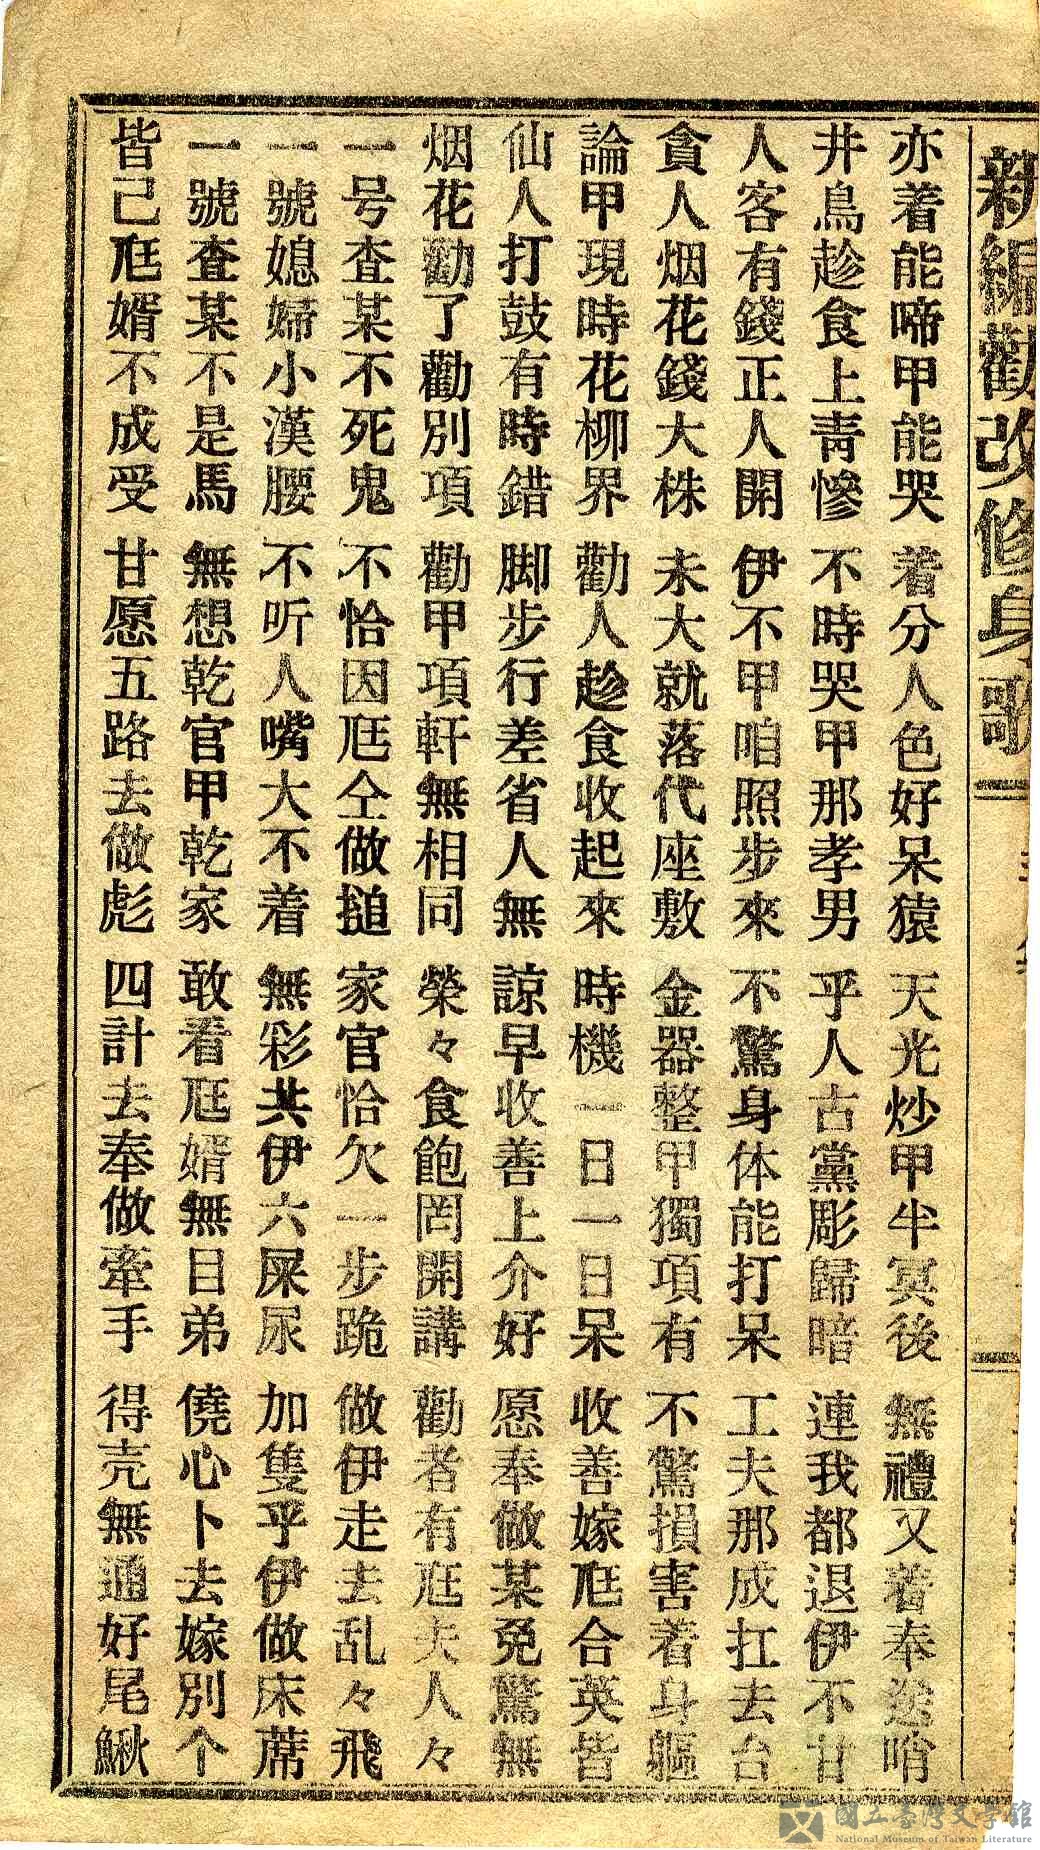 新編勸改修身歌
亦着能啼甲能哭 着分人色好呆猿 天光炒甲半冥後 無禮又着奉送哨
井鳥趁食上青慘 不時哭甲那孝男 乎人古黨彫歸暗 連我都退伊不甘
人客有錢正人開 伊不甲咱照步來 不驚身体能打呆 工夫那成扛去台
貪人烟花錢大株 未大就落代座敷 金器整甲獨項有 不驚損害着身軀
論甲現時花柳界 勸人趁食收起來 時機一日一日呆 收善嫁尫合英皆
仙人打鼓有時錯 脚步行差省人無 諒早收善上介好 愿奉做某免驚無
烟花勸了勸別項 勸甲項軒無相同 榮々食飽罔開講 勸者有尫夫人々
一号查某不死鬼 不恰因尫仝做搥 家官恰欠一步跪 做伊走去乱々飛
一號媳婦小漢腰 不听人嘴大不着 無彩共伊六屎尿 加隻乎伊做床蓆
一號查某不是馬 無想乾官甲乾家 敢看尫婿無目弟 僥心卜去嫁別个
皆己尫婿不成受 甘愿五路去做彪 四計去奉做牽手 得壳無通好尾鰍
國立臺灣文學館
National Museum of Taiwan Literature